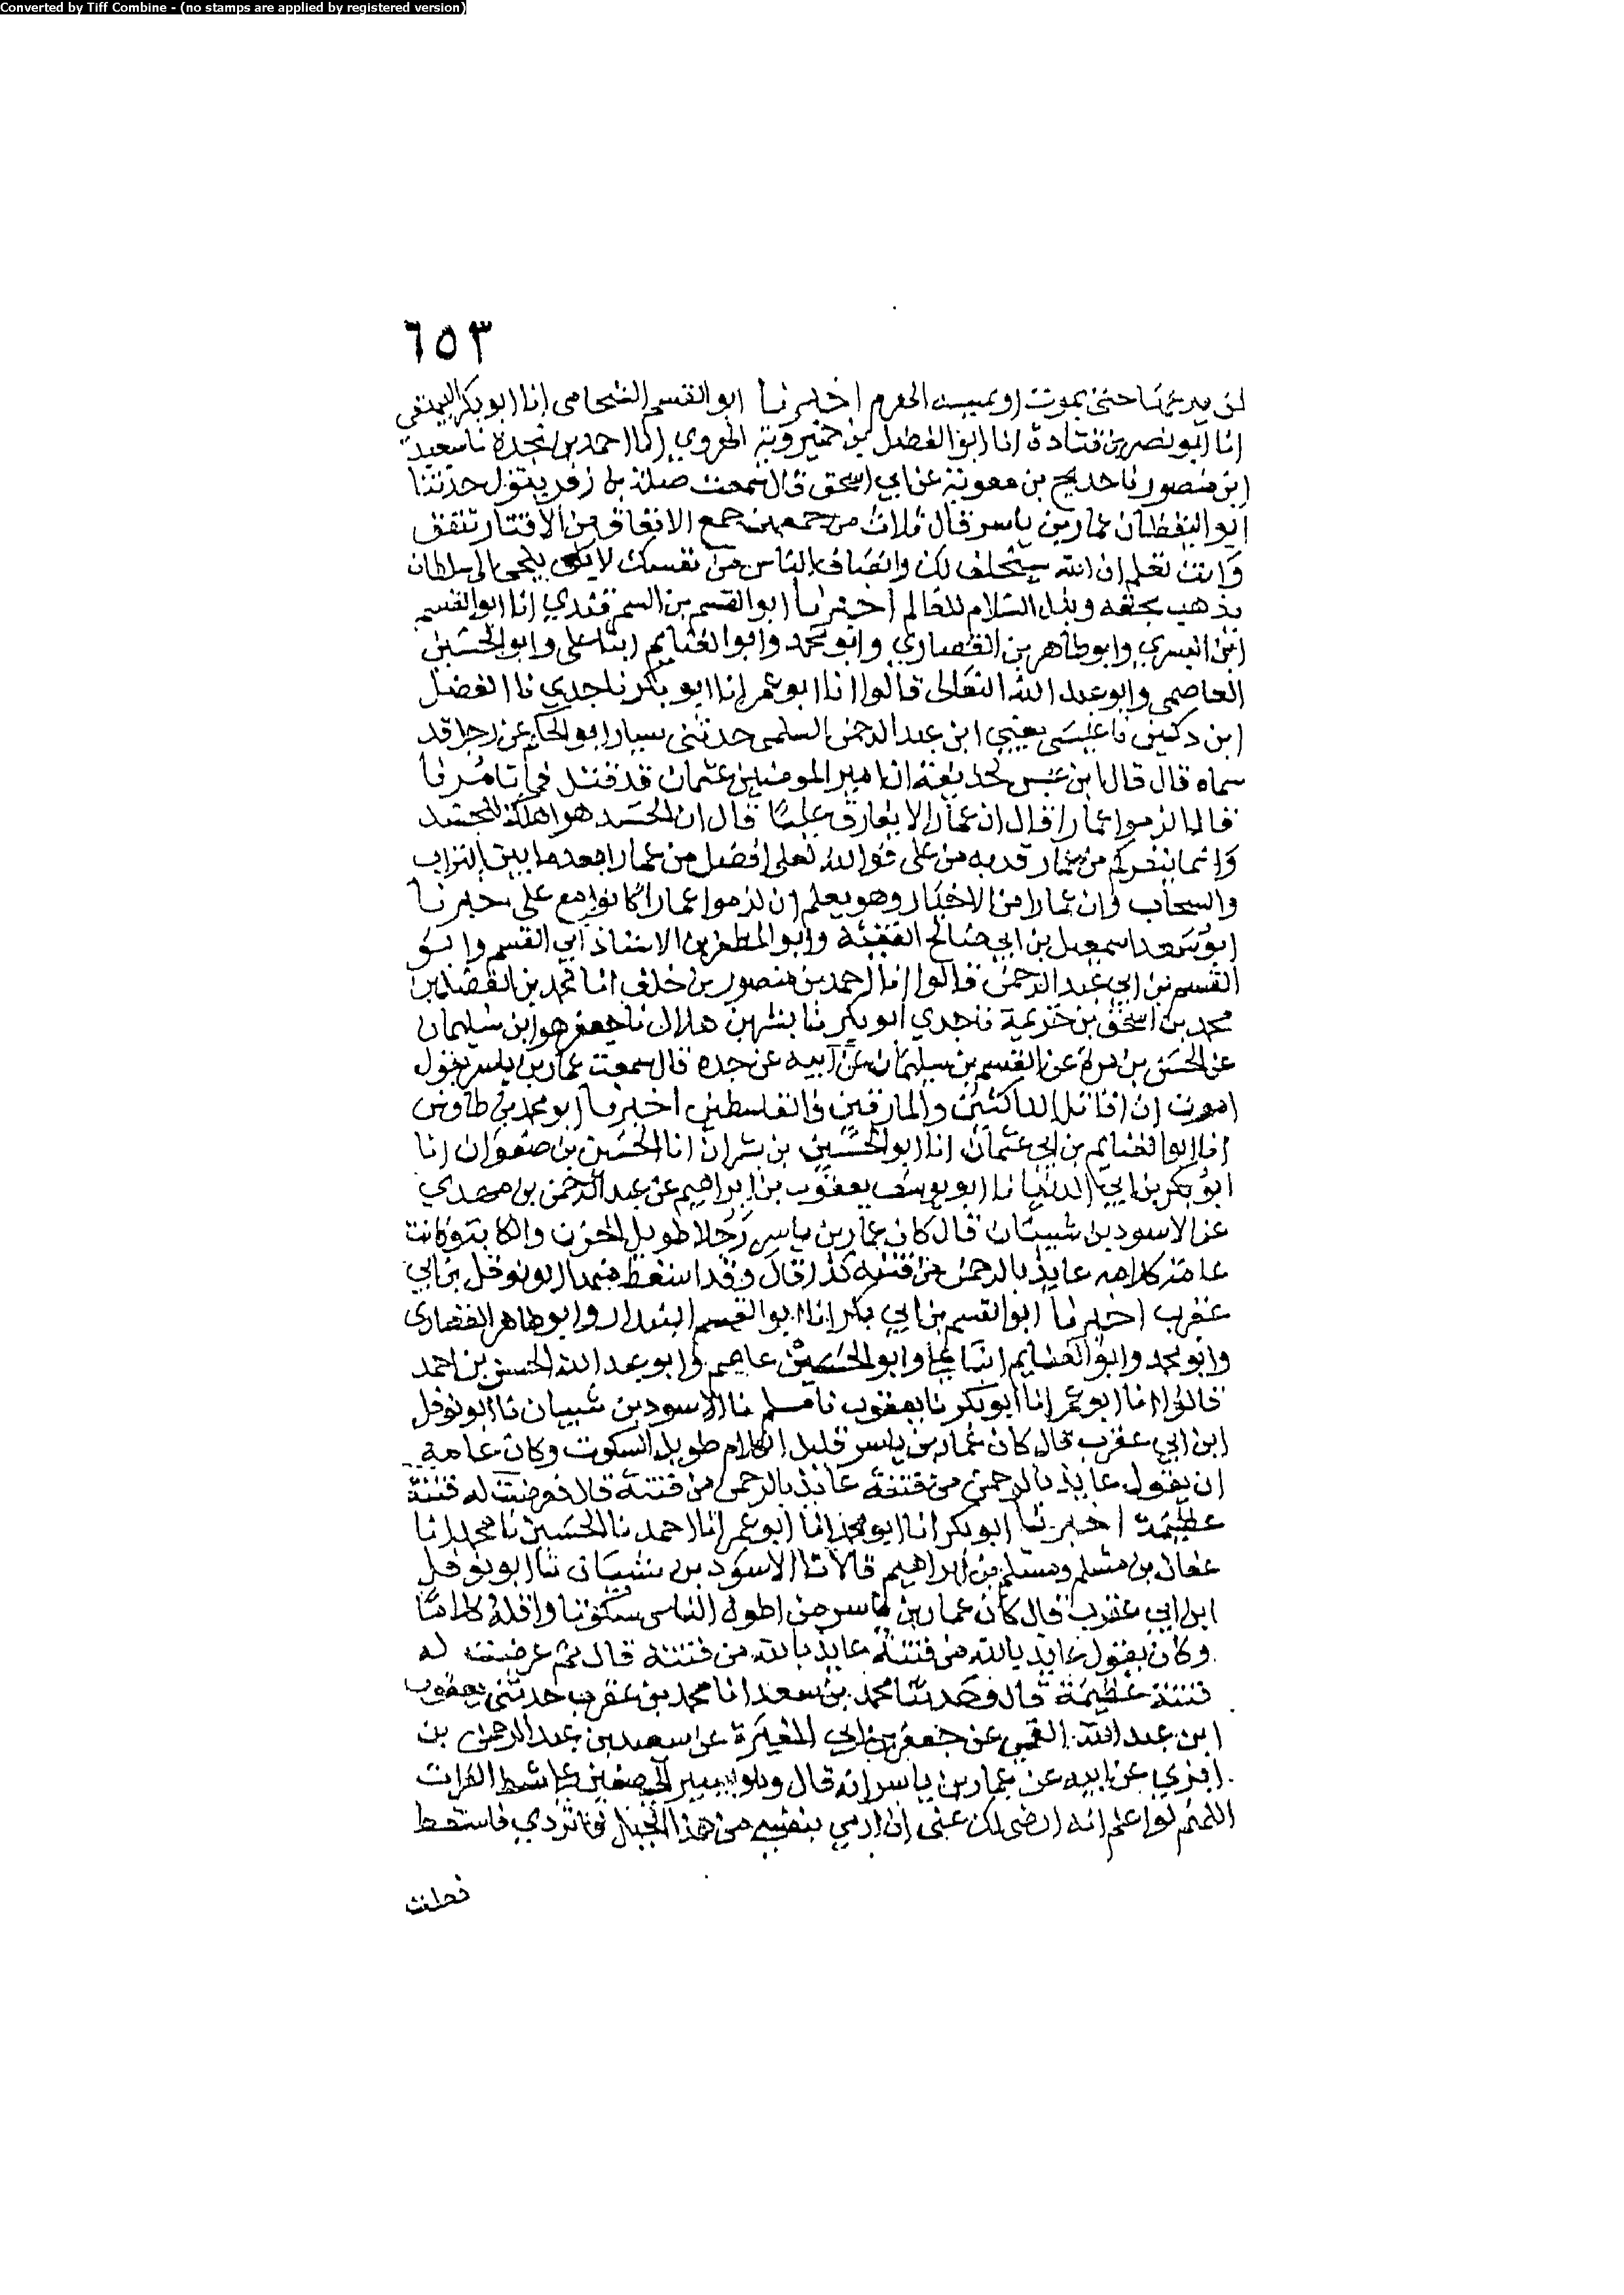 Converted by Tiff Combine - (no stamps are applied by registered version)
٦٥٣
حتى يموت او الهرم اخبرنا ابو القسم الشحامى انا ابو بكر البيهقى
انا ابو نصر بن قتادة انا ابو الفضل بن خميرويه الهروي انا احمد بن نجدة نا سعيد
ابن منصور نا حديج بن معوية عن ابي اسحق قال سمعت صلة بن زفر يقول حدثنا
ابو اليقظان عمار بن ياسر قال ثلاث من جمعهن جمع الانفاق من الاقتار تنفق
وانت تعلم ان الله سيخلف لك وانصاف الناس من نفسك لا يلجى الى سلطان
يذهب بحقه وبذل السلام للعالم اخبرنا ابو القسم بن السمرقندي انا ابو القسم
ابن البسري وابو طاهر بن القصاري وابو محمد وابو الغنايم ابنا على وابو الحسين
العاصمى وابو عبد الله النعالى قالوا انا ابو عمر انا ابو بكر نا جدي نا الفضل
ابن دكين نا عيسى يعني ابن عبد الرحمن السلمى حدثنى سيار ابو الحكم عن رجل قد
سماه قال قال ابن عبس لحذيفة ان امير المومنين عثمان قد قتل فما تامرنا
قال الزموا عمارا قال ان عمارا لا يفارق عليا قال ان الحسد هو اهلك للجسد
وانما ينفركم من عمار قربه من على فوالله لعلى افضل من عمار ابعد ما بين التراب
والسحاب وان عمارا من الاخيار وهو يعلم ان لزموا عمارا كانوا مع على خبرنا
ابو سعد اسمعيل بن ابي صالح الفقيه وابو المظفر بن الاستاذ ابي القسم وابو
القسم بن ابي عبد الرحمن قالوا انا احمد بن منصور بن خلف انا محمد بن الفضل بن
محمد بن اسحق بن خزيمة نا جدي ابو بكر نا بشر بن هلال نا جعفر هو ابن سليمان
عن الحسن بن مرة عن القسم بن سليمان عن ابيه عن جده قال سمعت عمار بن ياسر يقول
امرت ان اقاتل الناكثين والمارقين والقاسطين اخبرنا ابو محمد بن طاوس
انا ابو الغنايم بن ابي عثمان انا ابو الحسين بن بشران انا الحسين بن صفوان انا
ابو بكر بن ابي الدنيا نا ابو يوسف يعقوب بن ابراهيم عن عبد الرحمن بن مهدي
عن الاسود بن شيبان قال كان عمار بن ياسر رجلا طويل الحزن والكابة وكانت
عامة كلامه عايذ بالرحمن من فتنة كذا قال وقد اسقط منه ابو نوفل بن ابي
عقرب اخبرنا ابو القسم بن ابي بكر انا ابو القسم البندار وابو طاهر القصارى
وابو محمد وابو الغنايم ابنا على وابو الحسين عاصم وابو عبد الله الحسين بن احمد
قالوا انا ابو عمر انا ابو بكر نا يعقوب نا مسلم نا الاسود بن شيبان نا ابو نوفل
ابن ابي عقرب قال كان عمار بن ياسر قليل الكلام طويل السكوت وكان عامة
ان يقول عايذ بالرحمن من فتنة عائذ بالرحمن من فتنة قال فعرضت له فتنة
عظيمة اخبرنا ابو بكر انا ابو محمد انا ابو عمر انا احمد نا الحسين نا محمد انا
عفان بن مسلم ومسلم بن ابراهيم قالا نا الاسود بن شيبان نا ابو نوفل
ابن ابي عقرب قال كان عمار بن ياسر من اطول الناس سكوتا واقله كلاما
وكان يقول عايذ بالله من فتنة عايذ بالله من فتنة قال ثم عرضت له
فتنة عظيمة قال وحدثنا محمد بن سعد انا محمد بن عقرب حدثنى يعقوب
ابن عبد الله القمي عن جعفر بن ابي المغيرة عن سعيد بن عبد الرحمن بن
ابزي عن ابيه عن عمار بن ياسر انه قال وهو يسير الى صفين على شط الفرات
اللهم لو اعلم انه ارضى لك عنى ان ارمي بنفسي من هذا الجبل فاتردي فاسقط
فعلت